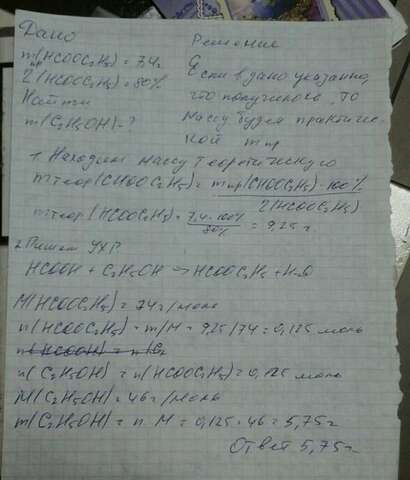 Дано
m пр (HCOOC₂H₅) = 7,4г
η (HCOOC₂H₅) = 80%
Найти
m(C₂H₅OH) - ?
Решение
Если в дано указанно,
что полученого, то
массу будем практичес-
кой m пр
1. Находим массу теоретическую
m теор (CHOOC₂H₅) = m пр (CHOOC₂H₅) · 100% / η (HCOOC₂H₅)
m теор (HCOOC₂H₅) = 7,4 · 100% / 80% = 9,25 г
2. Пишем УХР
HCOOH + C₂H₅OH → HCOOC₂H₅ + H₂O
M(HCOOC₂H₅) = 74 г/моль
n(HCOOC₂H₅) = m/M = 9,25/74 = 0,125 моль
n(HCOOH) = n(C₂
n(C₂H₅OH) = n(HCOOC₂H₅) = 0,125 моль
M(C₂H₅OH) = 46 г/моль
m(C₂H₅OH) = n · M = 0,125 · 46 = 5,75 г
Ответ 5,75 г